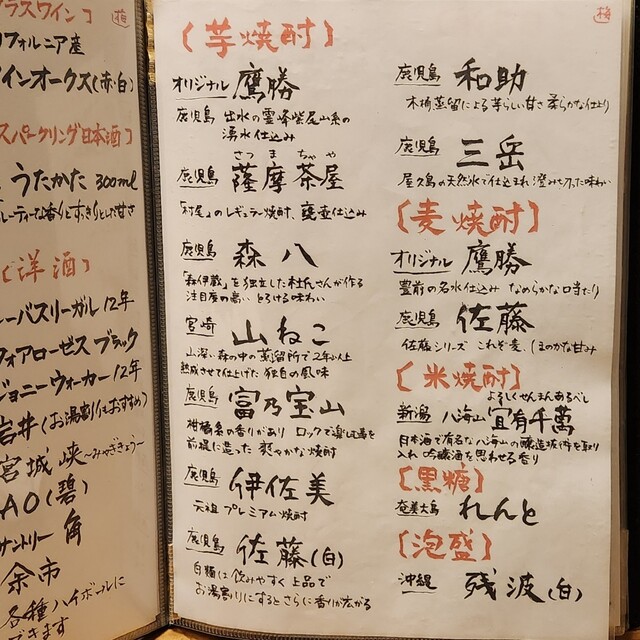 ラスワイン〕
リフォルニア産
インオークス(赤・白)
スパークリング日本酒〕
うたかた 300ml
ルーティーな香りとすっきりとした甘さ
〔洋酒〕
ーバスリーガル12年
フォアローゼス ブラック
ジョニーウォーカー12年
岩井(お湯割りもおすすめ)
宮城峡〜みやぎきょう〜
AO(碧)
サントリー 角
余市
各種ハイボールに
できます
梅
〔芋焼酎〕
オリジナル 鷹勝
鹿児島 出水の霊峰紫尾山系の
湧水仕込み
さつまちゃや
鹿児島 薩摩茶屋
「村尾」のレギュラー焼酎、甕壷仕込み
鹿児島 森八
「森伊蔵」を独立した杜氏さんが作る
注目度の高い とろける味わい
宮崎 山ねこ
山深い森の中の蒸留所で2年以上
熟成させて仕上げた 独自の風味
鹿児島 富乃宝山
柑橘系の香りがあり ロックで楽しむ事を
前提に造った 爽やかな焼酎
鹿児島 伊佐美
元祖 プレミアム焼酎
鹿児島 佐藤(白)
白麹は飲みやすく上品で
お湯割りにするとさらに香りが広がる
梅
鹿児島 和助
木桶蒸留による芋らしい甘さ 柔らかな仕上り
鹿児島 三岳
屋久島の天然水で仕込まれ 澄みきった味わい
〔麦焼酎〕
オリジナル 鷹勝
豊前の名水仕込み なめらかな口当たり
鹿児島 佐藤
佐藤シリーズ これぞ麦、ほのかな甘み
〔米焼酎〕
よろしくせんまんあるべし
新潟 八海山 宜有千萬
日本酒で有名な八海山の醸造技術を取り
入れ 吟醸酒を思わせる香り
〔黒糖〕
奄美大島 れんと
〔泡盛〕
沖縄 残波(白)